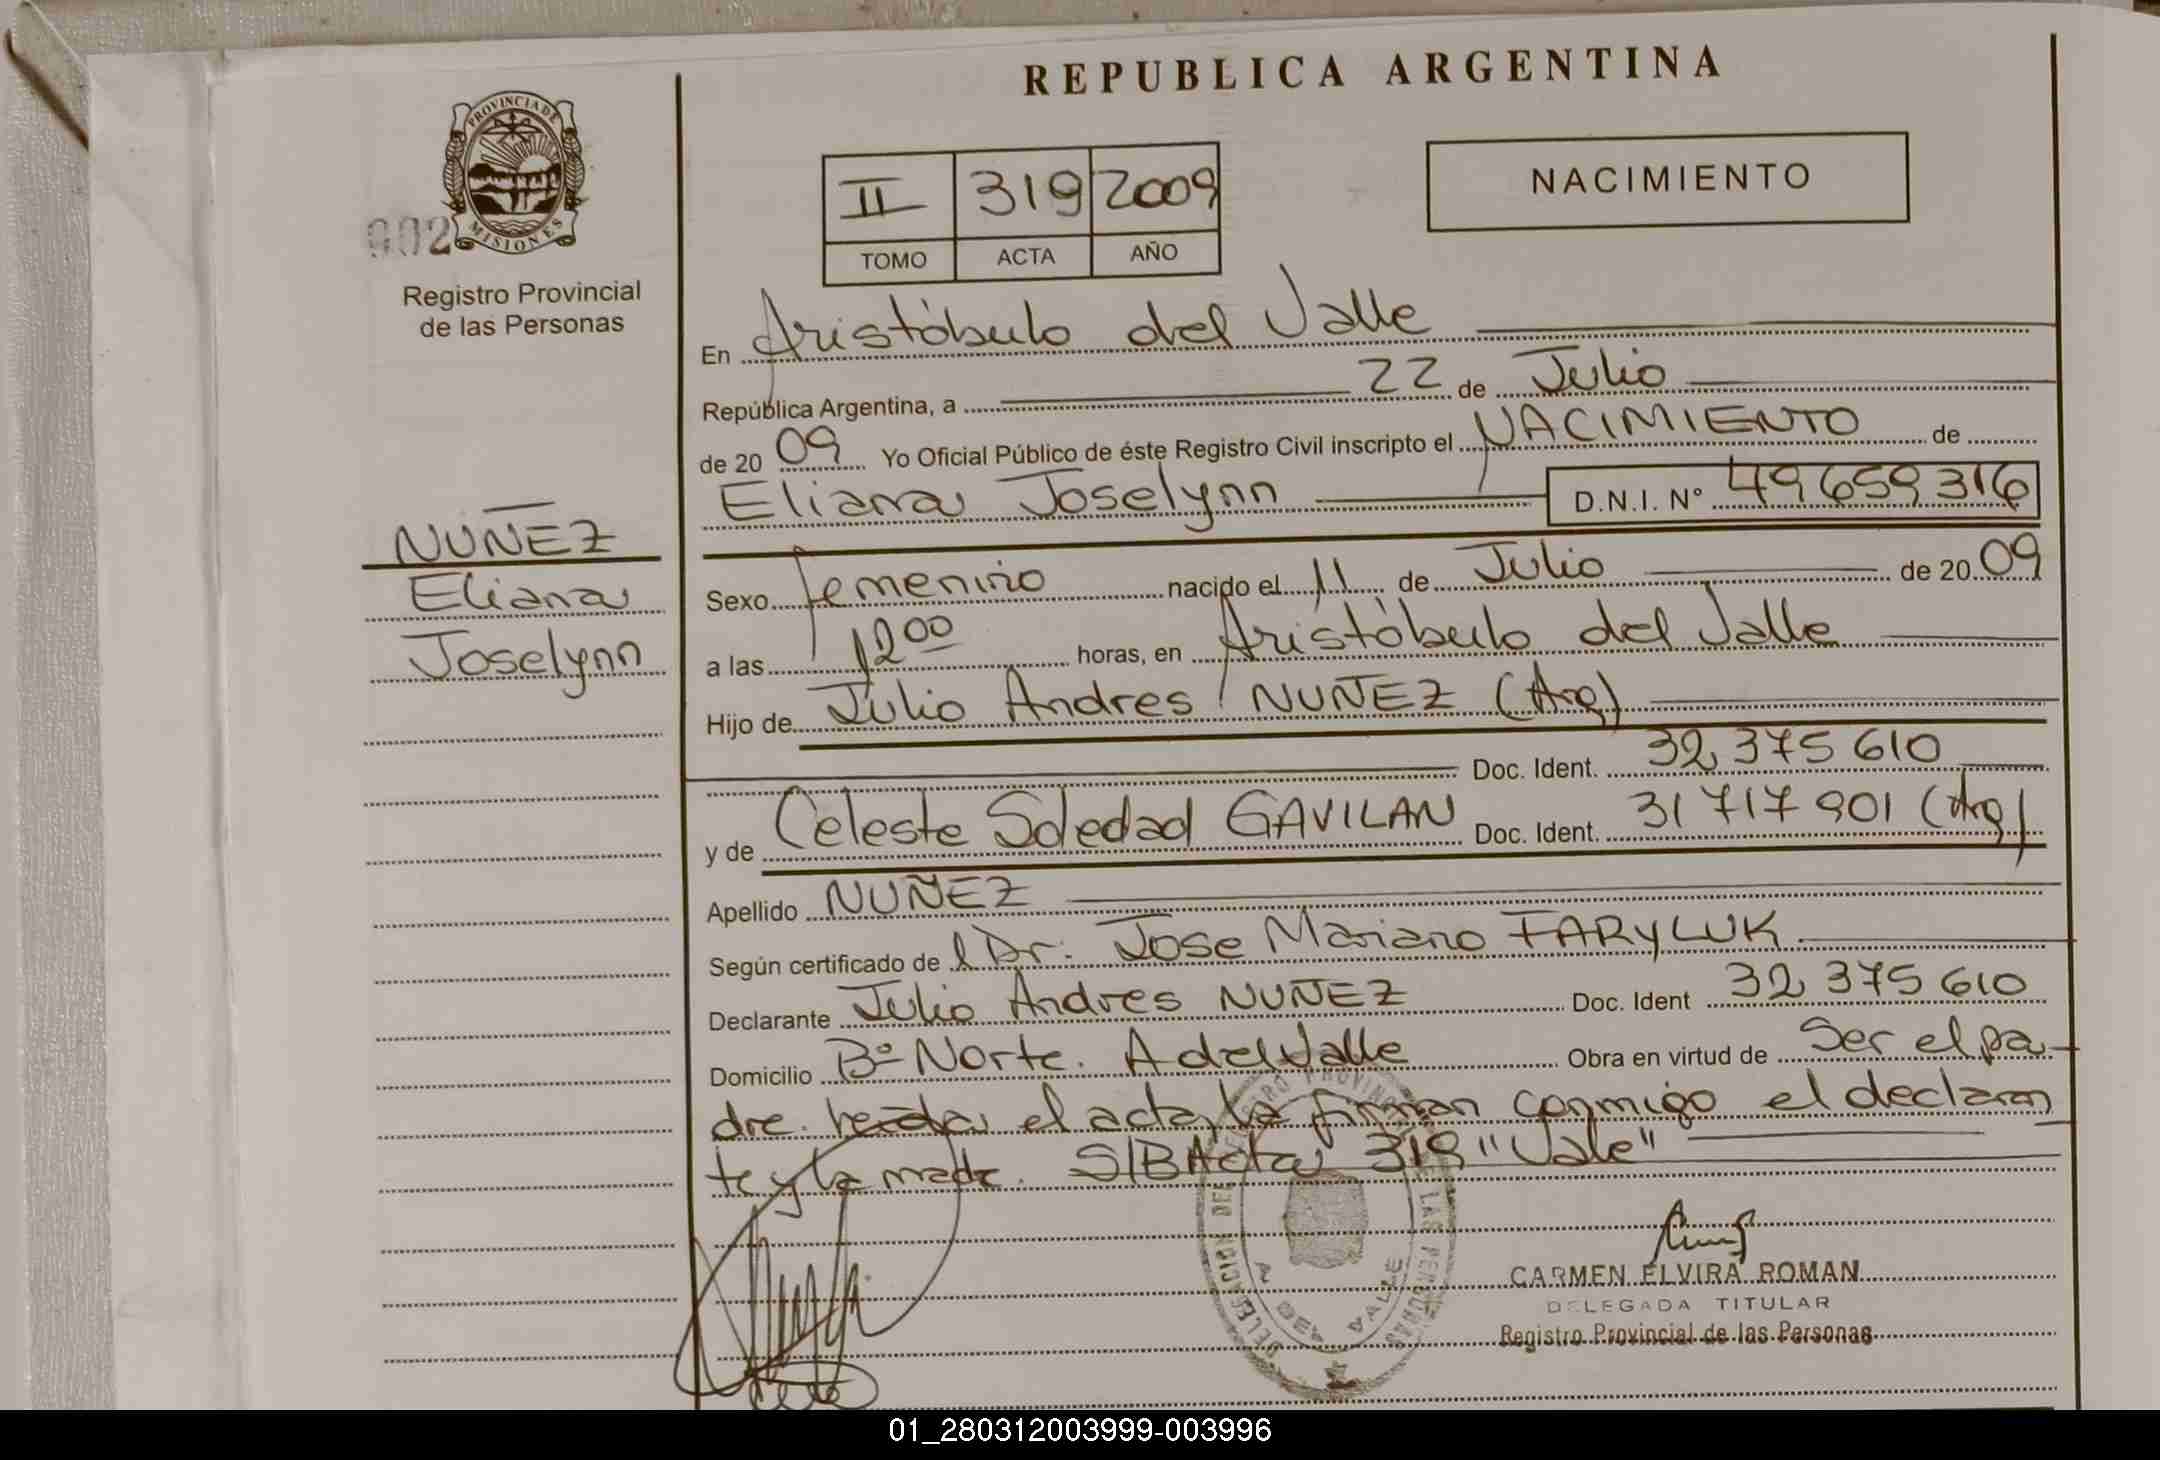 REPUBLICA ARGENTINA
PROVINCIA DE MISIONES
902
Registro Provincial
de las Personas
II 319 2009
TOMO ACTA AÑO
NACIMIENTO
En Aristóbulo del Valle
República Argentina, a 22 de Julio
de 2009 Yo Oficial Público de éste Registro Civil inscripto el NACIMIENTO de
Eliana Joselynn D.N.I. Nº 49659316
NUÑEZ
Eliana
Joselynn
Sexo femenino nacido el 11 de Julio de 2009
a las 12 00 horas, en Aristóbulo del Valle
Hijo de Julio Andres NUÑEZ (Arg)
Doc. Ident. 32 375 610
y de Celeste Soledad GAVILAN Doc. Ident. 31 717 901 (Arg)
Apellido NUÑEZ
Según certificado de l Dr. Jose Mariano FARYLUK
Declarante Julio Andres NUÑEZ Doc. Ident 32 375 610
Domicilio Bº Norte. A del Valle Obra en virtud de Ser el pa-
dre. Leida el acta, la firman conmigo el declaran
te y la madre. S/B Acta 319 "Vale"
DELEGACION DEL REGISTRO PROVINCIAL DE LAS PERSONAS
A DEL VALLE
CARMEN ELVIRA ROMAN
DELEGADA TITULAR
Registro Provincial de las Personas
01_280312003999-003996